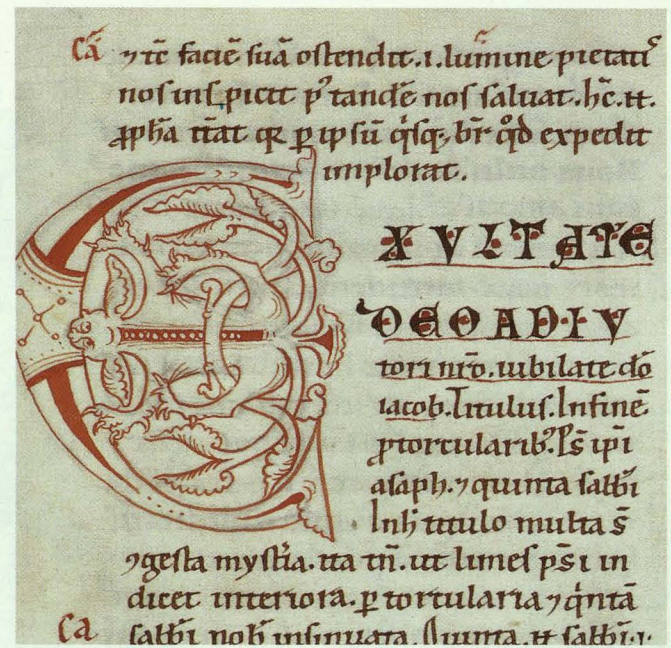 Cā ⁊ tē faciē suā ostendit .i. lumine pietatis
nos inspicit p᾽ tandē nos saluat. hc̄.
ꝓpha qꝛ ꝑ ipsū q̇sq; br̄ qd̊ expedit
implorat.
EXVLTATE
DEO ADIV
tori nr̄o. iubilate dō
iacob. Titulus. In finē
ꝓ torcularib᾽. Ps̄ ipi
asaph. ⁊ quinta sabb̄i
In h̄ titulo multa s̄
⁊gesta mystīa. ita tn̄. ut limes ps̄i in
dicet interiora. ꝑ torcularia ⁊ q̇ntā
Ca sabb̄i nob̄ insinuata. sabb̄i